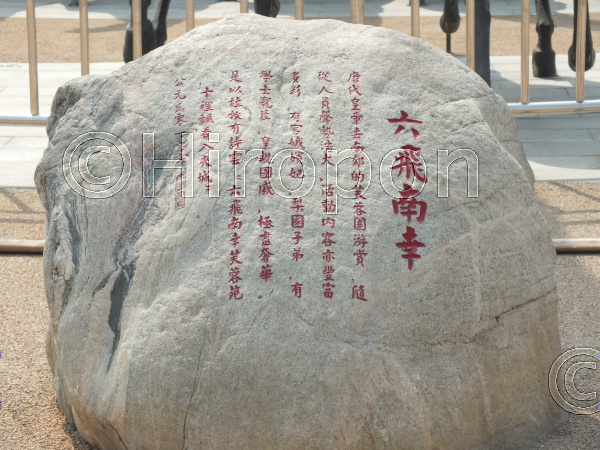 六飛南幸
唐代皇帝去南郊的芙蓉園游賞，隨
從人員聲勢浩大，活動内容亦豐富
多彩，有宮娥嬪妃、梨園子弟，有
學士親臣、皇勳國戚，極盡奢華。
是以杜牧有詩雲：六飛南幸芙蓉苑
十裡飄香入夾城。
公元
© Hiropon ©
©